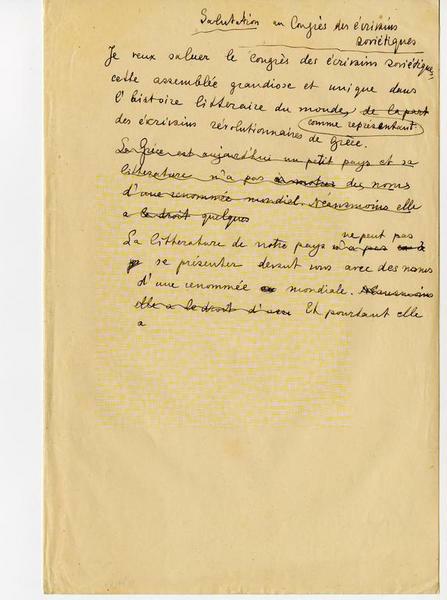 Salutation au Congrès des écrivains
soviétiques
Je veux saluer le Congrès des écrivains soviétiques,
cette assemblée grandiose et unique dans
l'histoire litteraire du monde, de la part
comme représentant
des écrivains révolutionnaires de Grèce.
La Grèce est aujourd'hui un petit pays et sa
litterature n'a pas à montrer des noms
d'une renommée mondial. Neansmoins elle
a le droit quelques
ne peut pas
La litterature de notre pays n'a pas à
se présenter devant vous avec des noms
d'une renommée mondiale. Neansmoins
elle a le droit d' Et pourtant elle
a